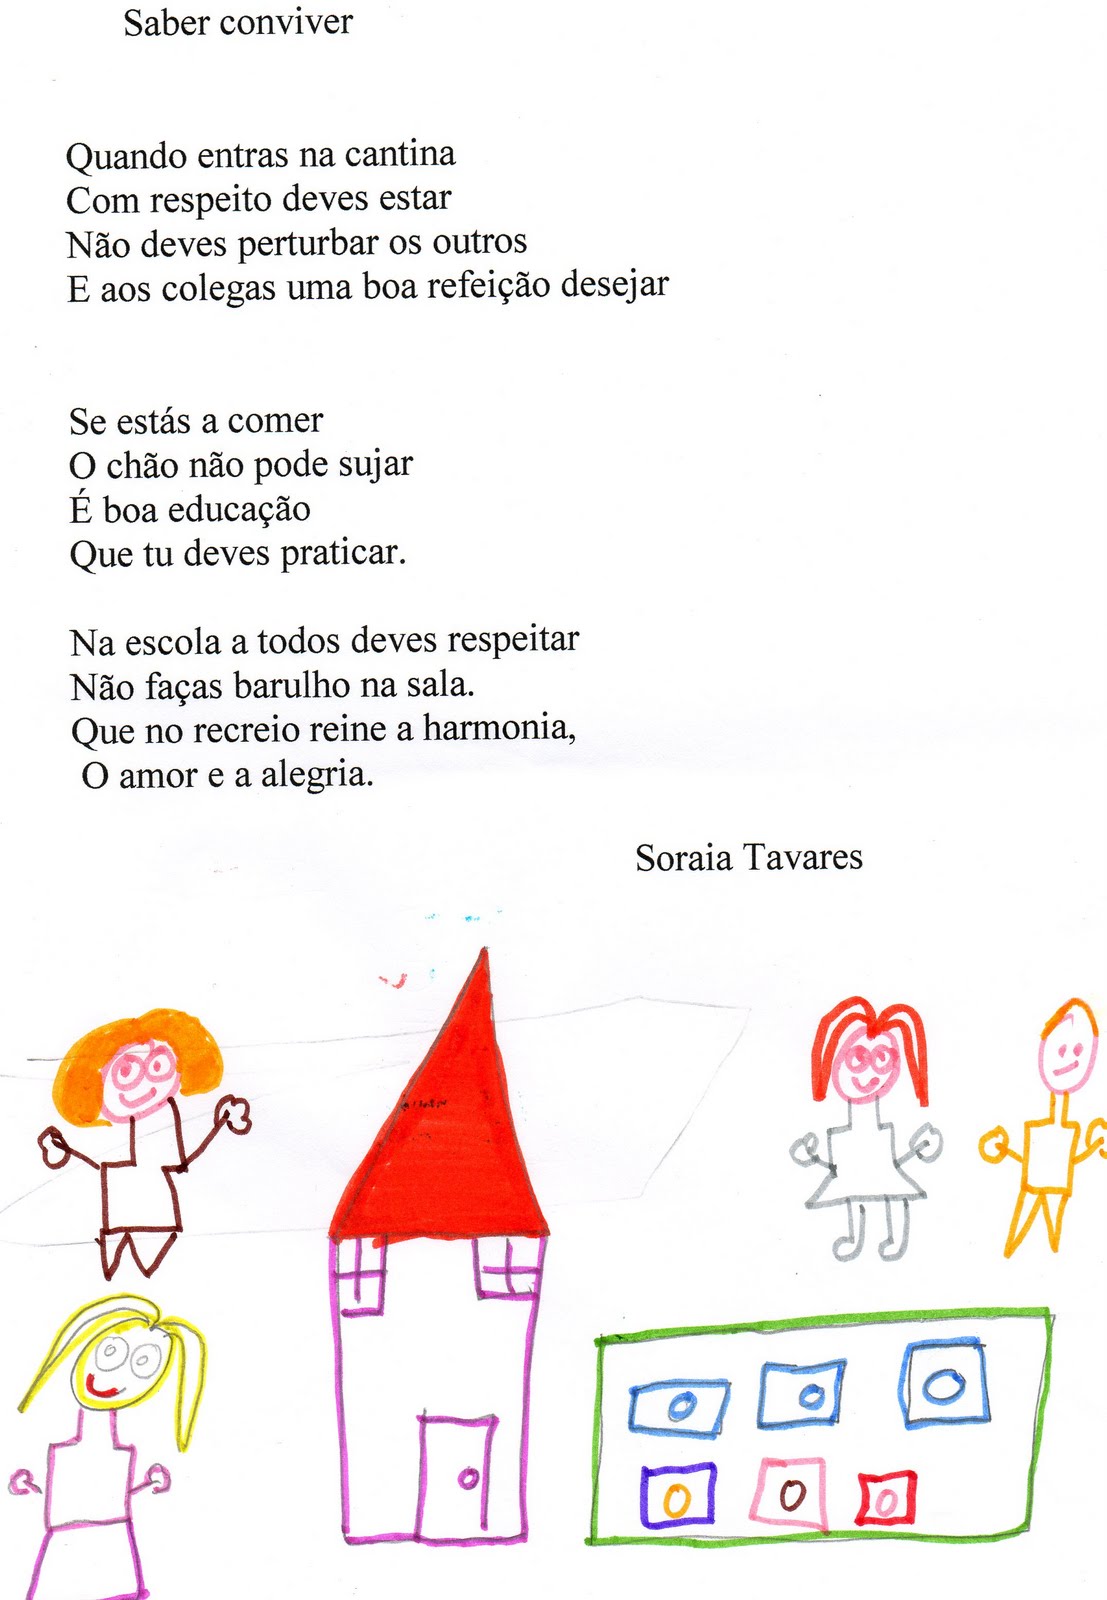 Saber conviver
Quando entras na cantina
Com respeito deves estar
Não deves perturbar os outros
E aos colegas uma boa refeição desejar
Se estás a comer
O chão não pode sujar
É boa educação
Que tu deves praticar.
Na escola a todos deves respeitar
Não faças barulho na sala.
Que no recreio reine a harmonia,
O amor e a alegria.
Soraia Tavares